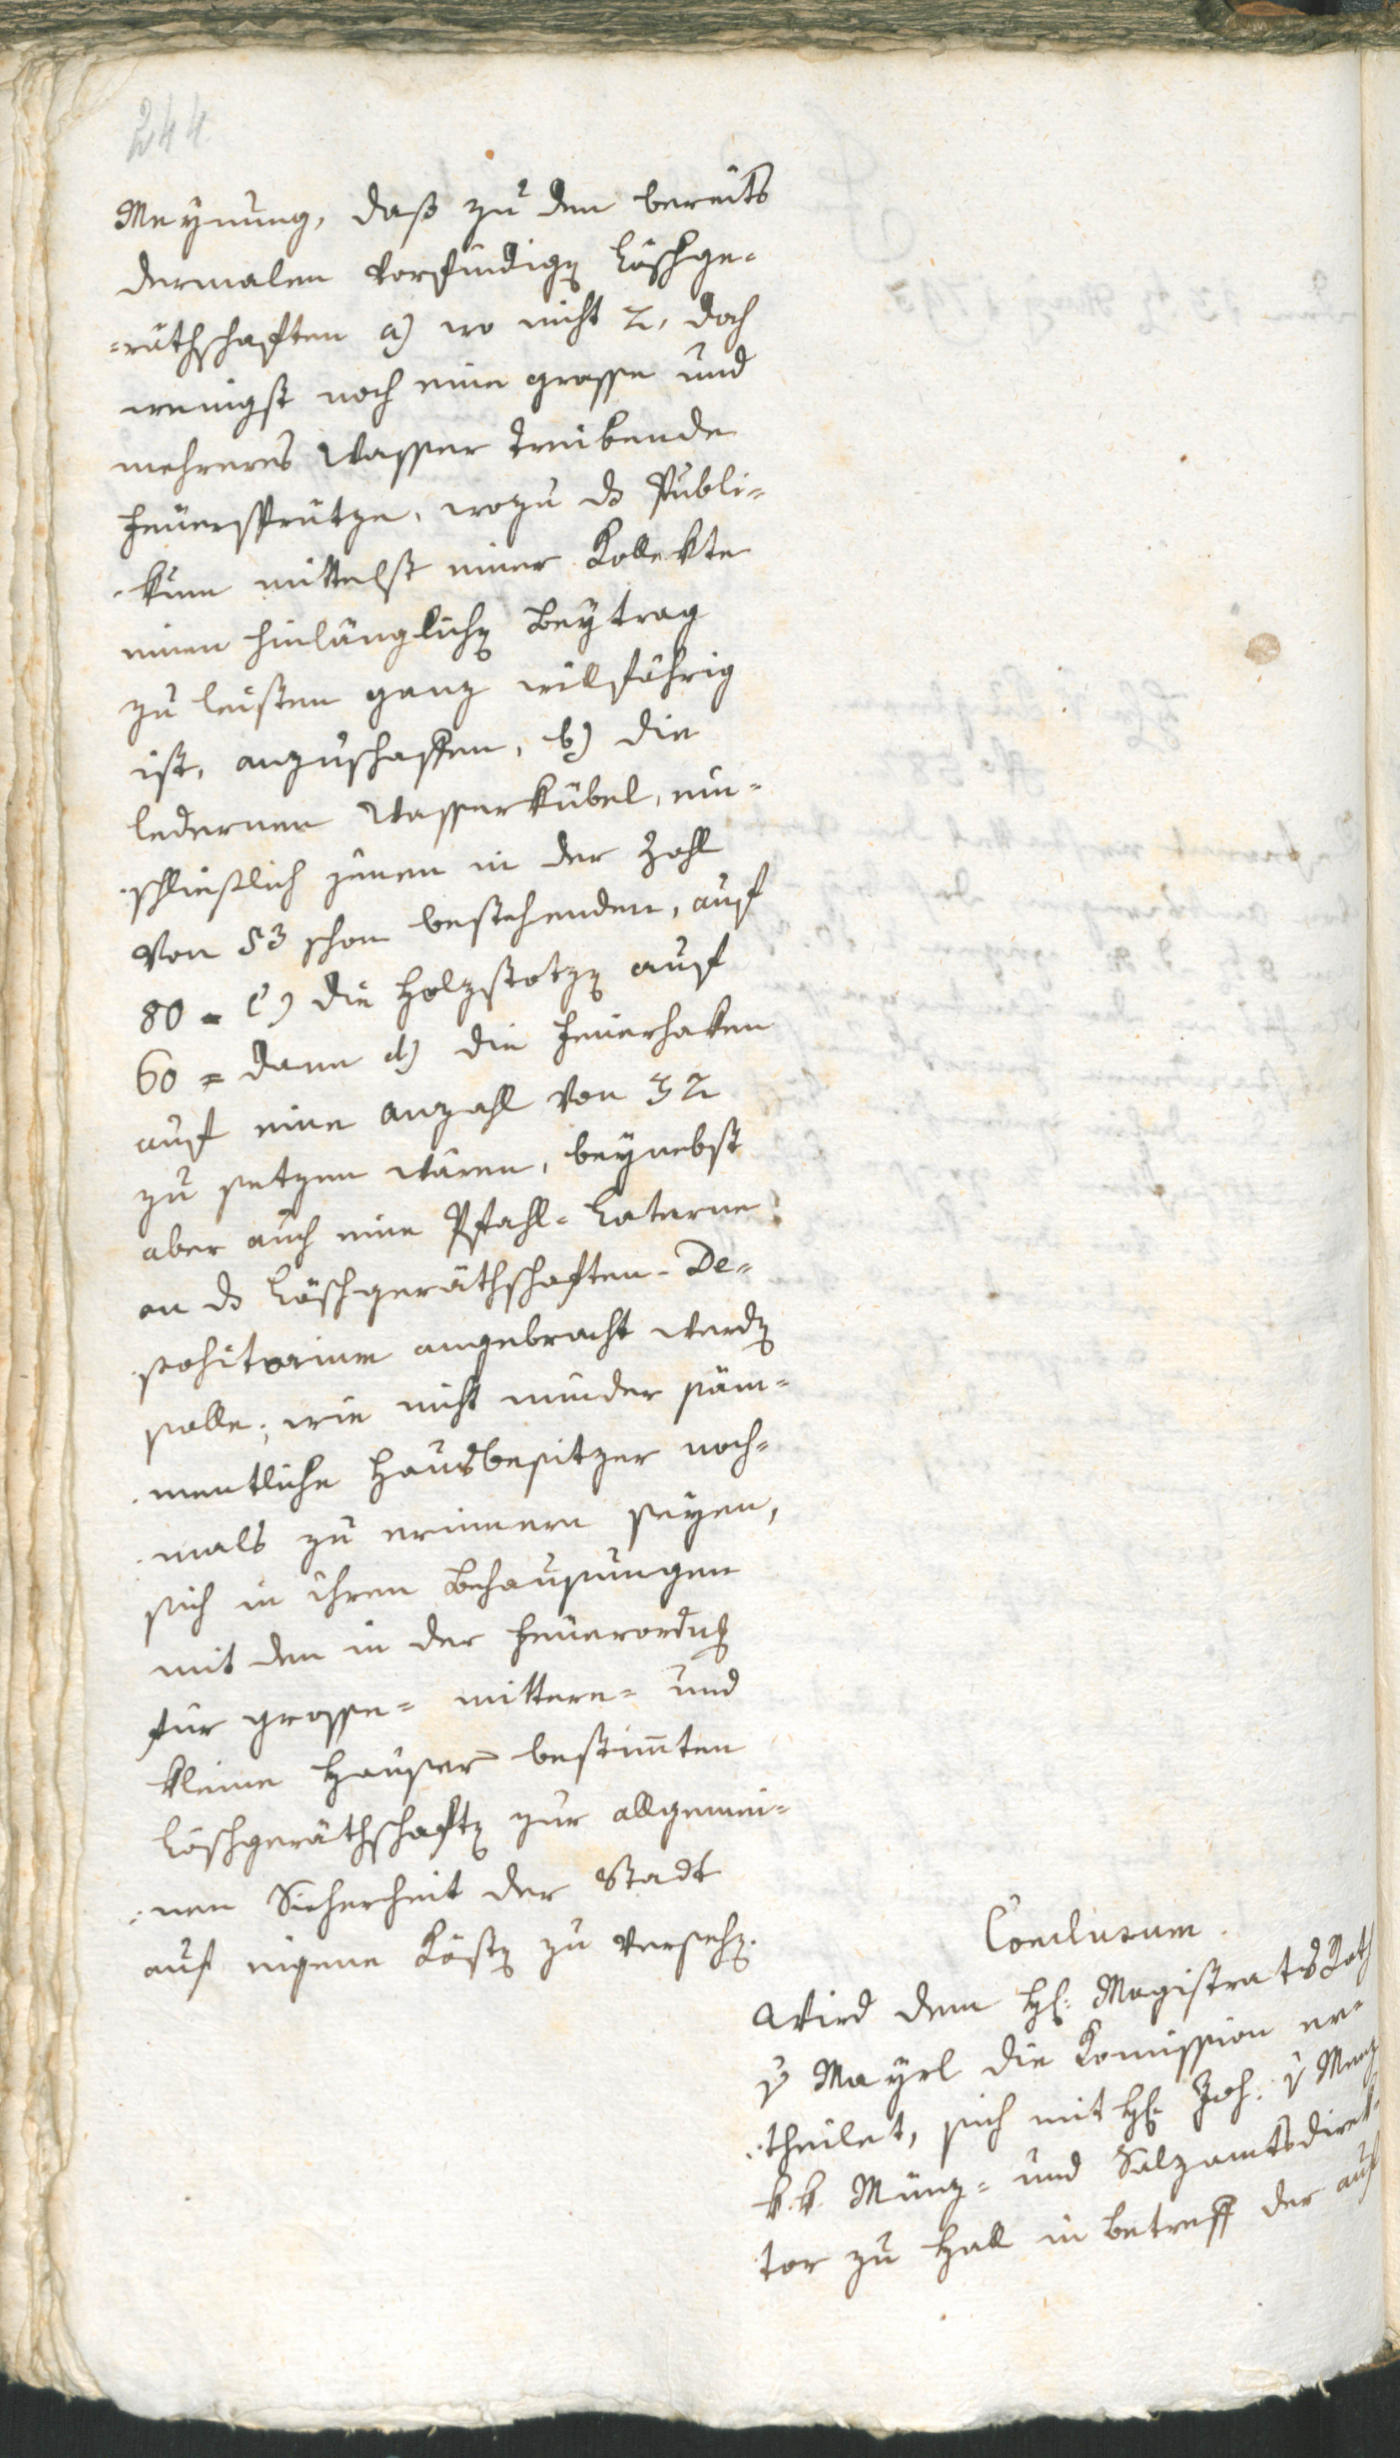 244
Meynung, daß zu den bereits
dermalen vorfindigen Löschge-
-räthschaften a) wo nicht 2, doch
wenigst noch eine grosse und
mehreres Wasser treibende
Feuersprütze, wozu ds Publi-
-kum mittelst einer Kollekte
einen hinlänglichen Beytrag
zu leisten ganz wilfährig
ist, anzuschaffen, b) die
ledernen Wasserkübel, ein-
-schließlich jenen in der Zahl
von 53 schon bestehenden, auf
80 - c) die Holzstotzen auf
60 = dann d) die Feuerhaken
auf eine Anzahl von 32
zu setzen wären, beynebst
aber auch eine Pfahl-Laterne
an ds Löschgeräthschaften-De-
-positorium angebracht werden
solle; wie nicht minder säm-
-mentliche Hausbesitzer noch-
-mals zu erinnern seyen,
sich in ihren Behausungen
mit den in der Feuerordng
für grosse- mittere- und
kleine Häuser bestim̄ten
Löschgeräthschaften zur allgemei-
-nen Sicherheit der Stadt
auf eigene Kösten zu versehen.
Conclusum.
Wird dem H: Magistrats Rath
v Mayrl die Komission er-
-theilet, sich mit H: Joh: v Menz
k. k. Münz- und Salzamtsdirek-
tor zu Hall in betreff der auf